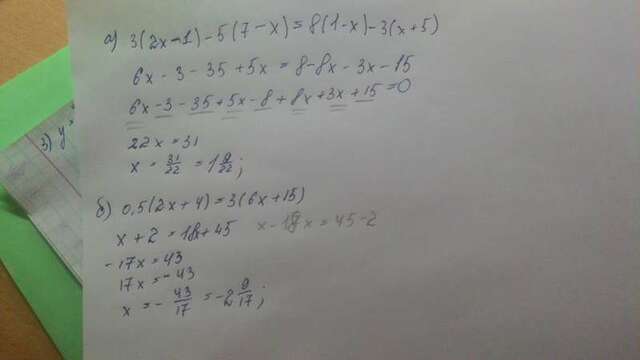 3) y
а) 3(2x-1)-5(7-x)=8(1-x)-3(x+5)
6x-3-35+5x=8-8x-3x-15
6x-3-35+5x-8+8x+3x+15=0
22x=31
x=31/22=1 9/22;
б) 0,5(2x+4)=3(6x+15)
x+2=18x+45 x-18x=45-2
-17x=43
17x=-43
x=-43/17=-2 9/17;